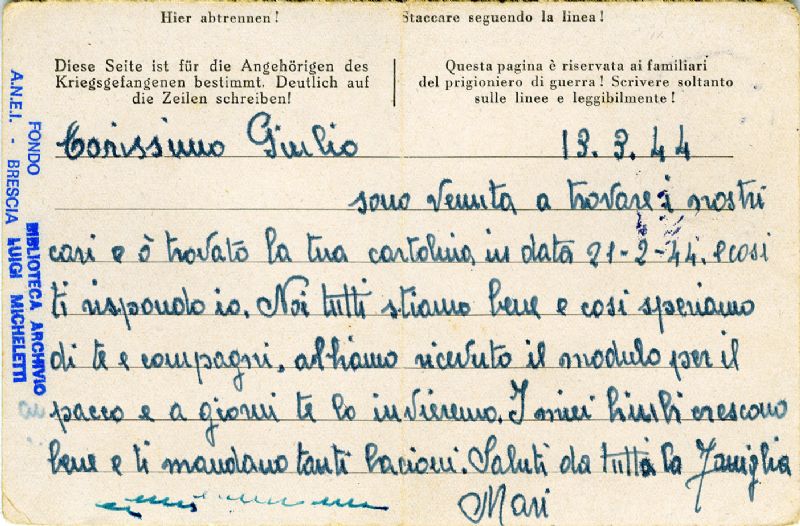 Hier abtrennen!
Staccare seguendo la linea!
Diese Seite ist für die Angehörigen des
Kriegsgefangenen bestimmt. Deutlich auf
die Zeilen schreiben!
Questa pagina è riservata ai familiari
del prigioniero di guerra! Scrivere soltanto
sulle linee e leggibilmente!
FONDO BIBLIOTECA ARCHIVIO
A.N.E.I. - BRESCIA LUIGI MICHELETTI
Carissimo Giulio 13.3.44
sono venuta a trovare i nostri
cari e ò trovato la tua cartolina in data 21-2-44. e cosi
ti rispondo io. Noi tutti stiamo bene e cosi speriamo
di te e compagni, abbiamo ricevuto il modulo per il
pacco e a giorni te lo invieremo. I miei crescono
bene e ti mandano tanti bacioni. Saluti da tutta la Famiglia
Mari